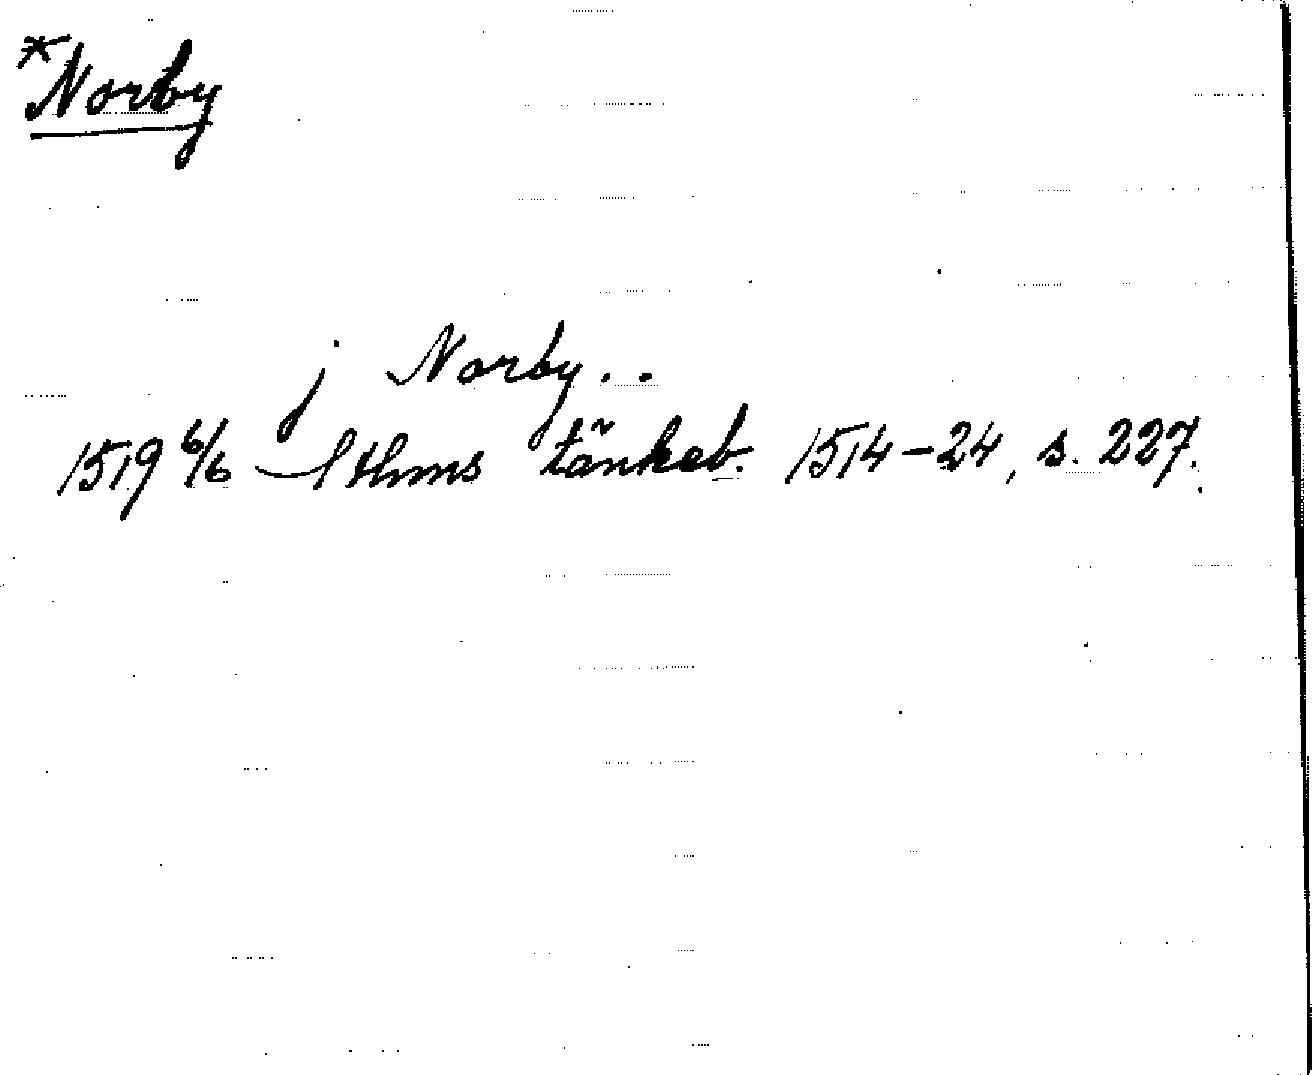 *Norby
j Norby..
1519 6/6 Sthms tänkeb. 1514-24, s. 227.